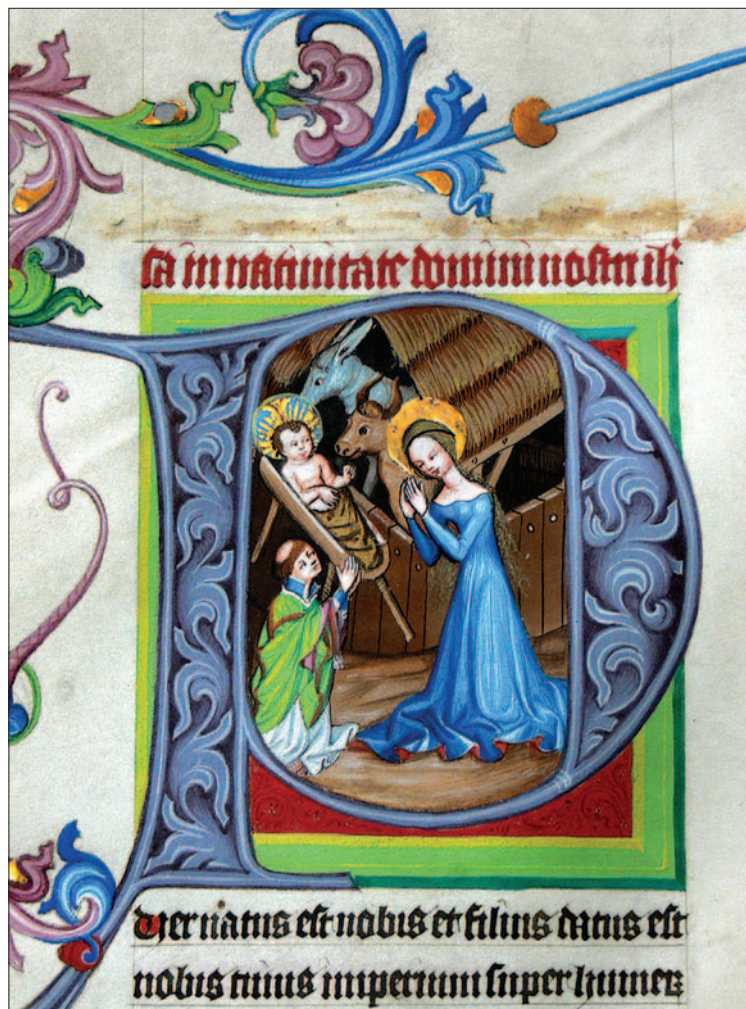 sa in natiuitate domini nostri ih
P
uer natus est nobis et filius datus est
nobis cuius imperium super humer